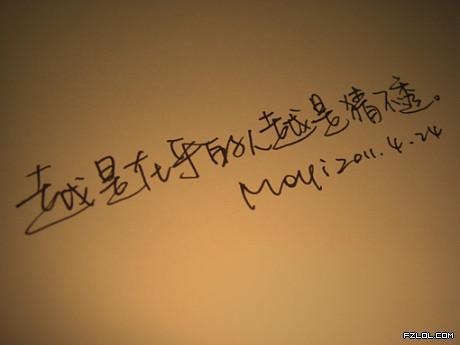 越是在乎的人越是猜不透。
Moyi 2011.4.24
FZLOL.COM